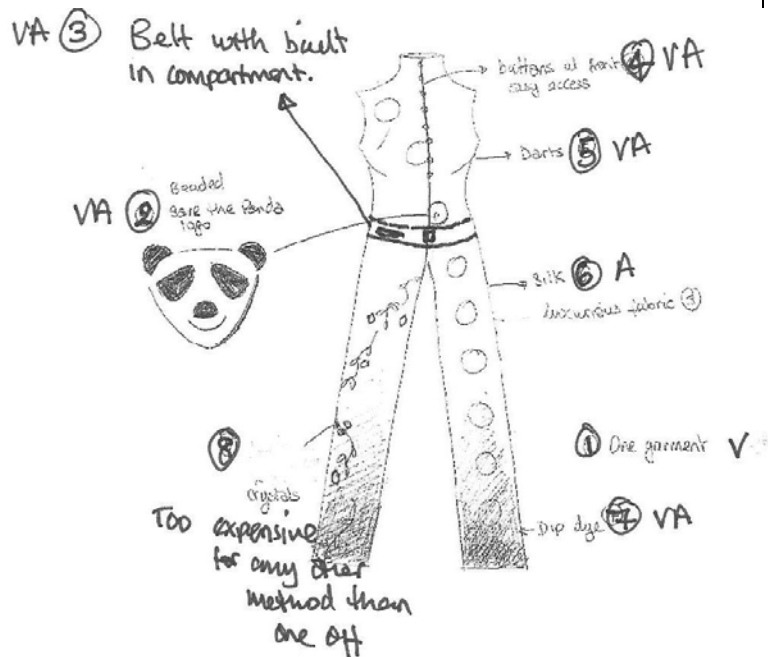 VA ③ Belt with built
in compartment.
buttons at front ④ VA
easy access
Darts ⑤ VA
VA ② Beaded
Save the Panda
logo
Silk ⑥ A
luxurious fabric ③
⑧
crystals
① One garment V
Too expensive
for any other
method than
one off
Dip dye ⑦ VA